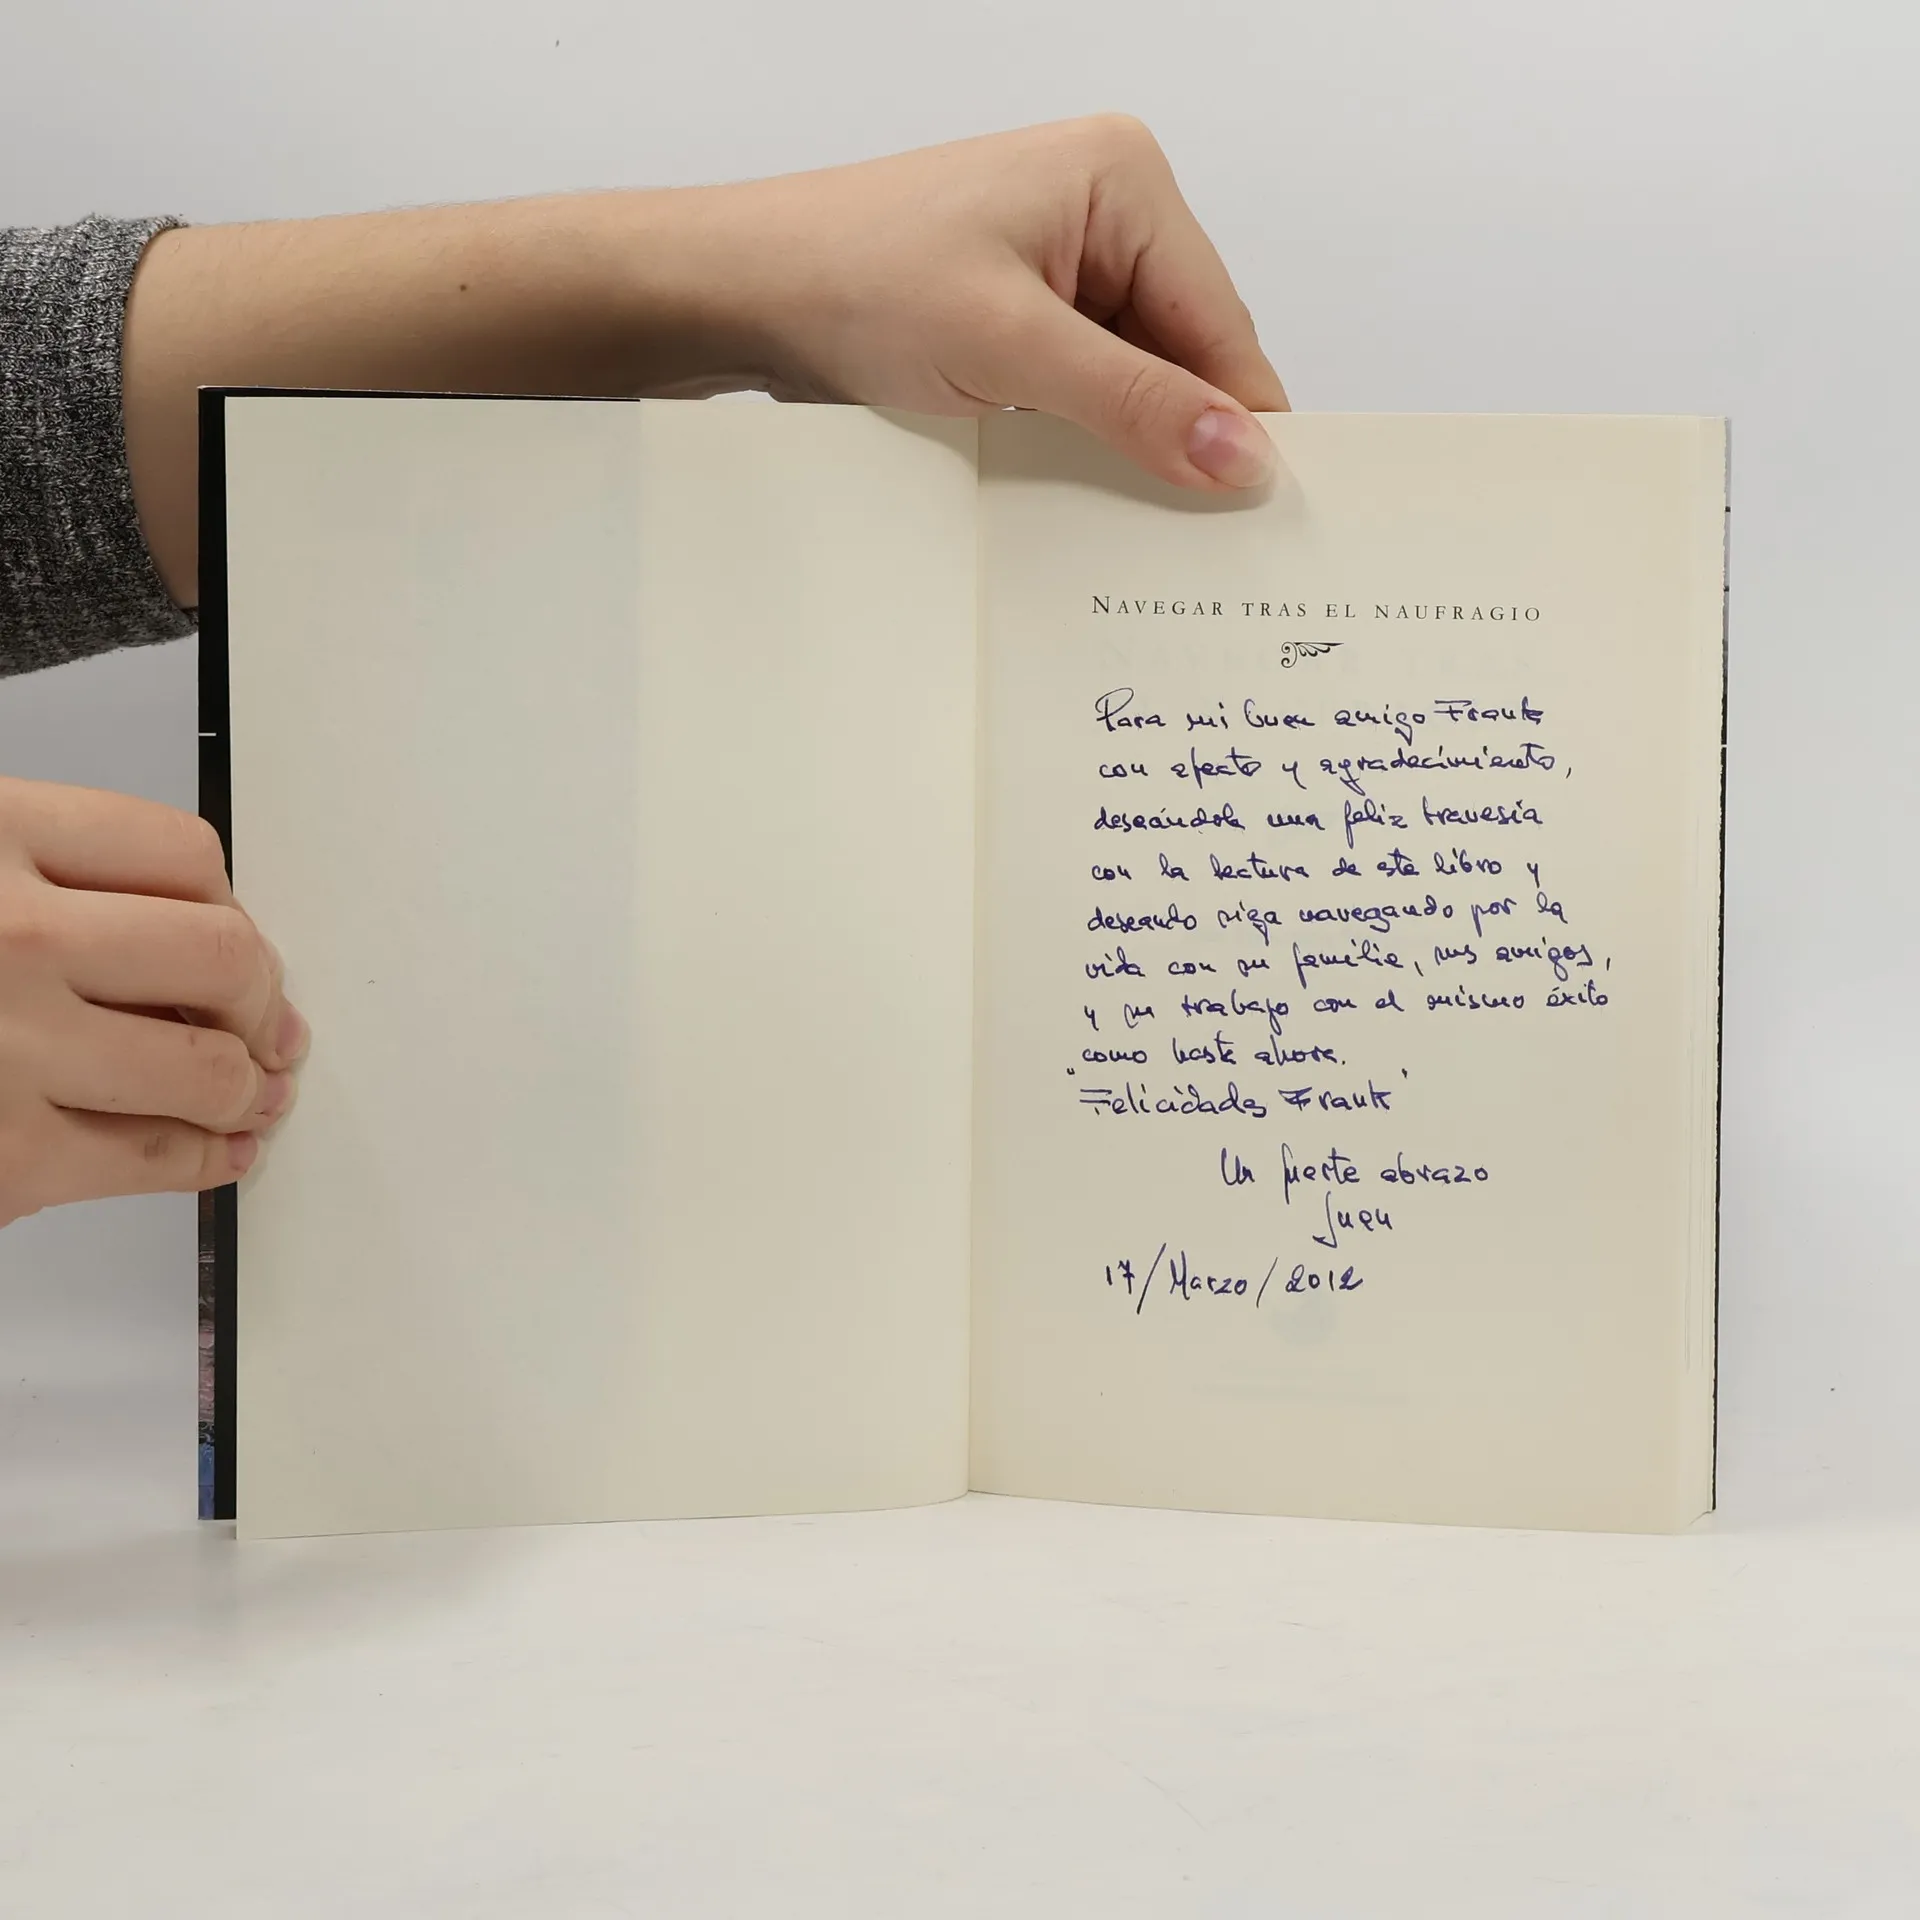 NAVEGAR TRAS EL NAUFRAGIO
Para mi buen amigo Frank
con afecto y agradecimiento,
deseándole una feliz travesía
con la lectura de este libro y
deseando siga navegando por la
vida con su familia, sus amigos,
y su trabajo con el mismo éxito
como hasta ahora.
"Felicidades Frank"
Un fuerte abrazo
Juan
17/Marzo/2012